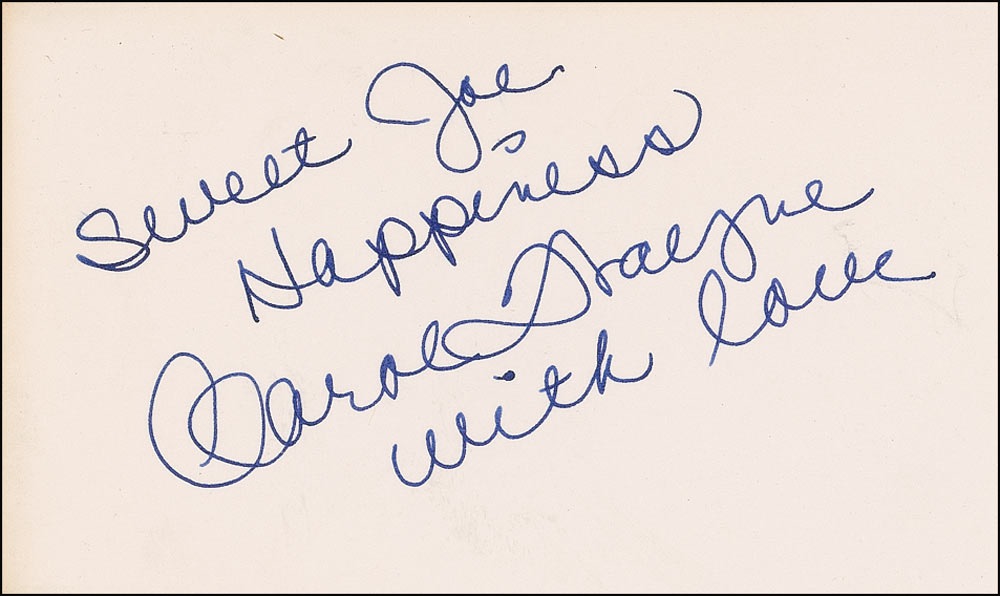 Sweet Joe
Happiness
Carol
with love